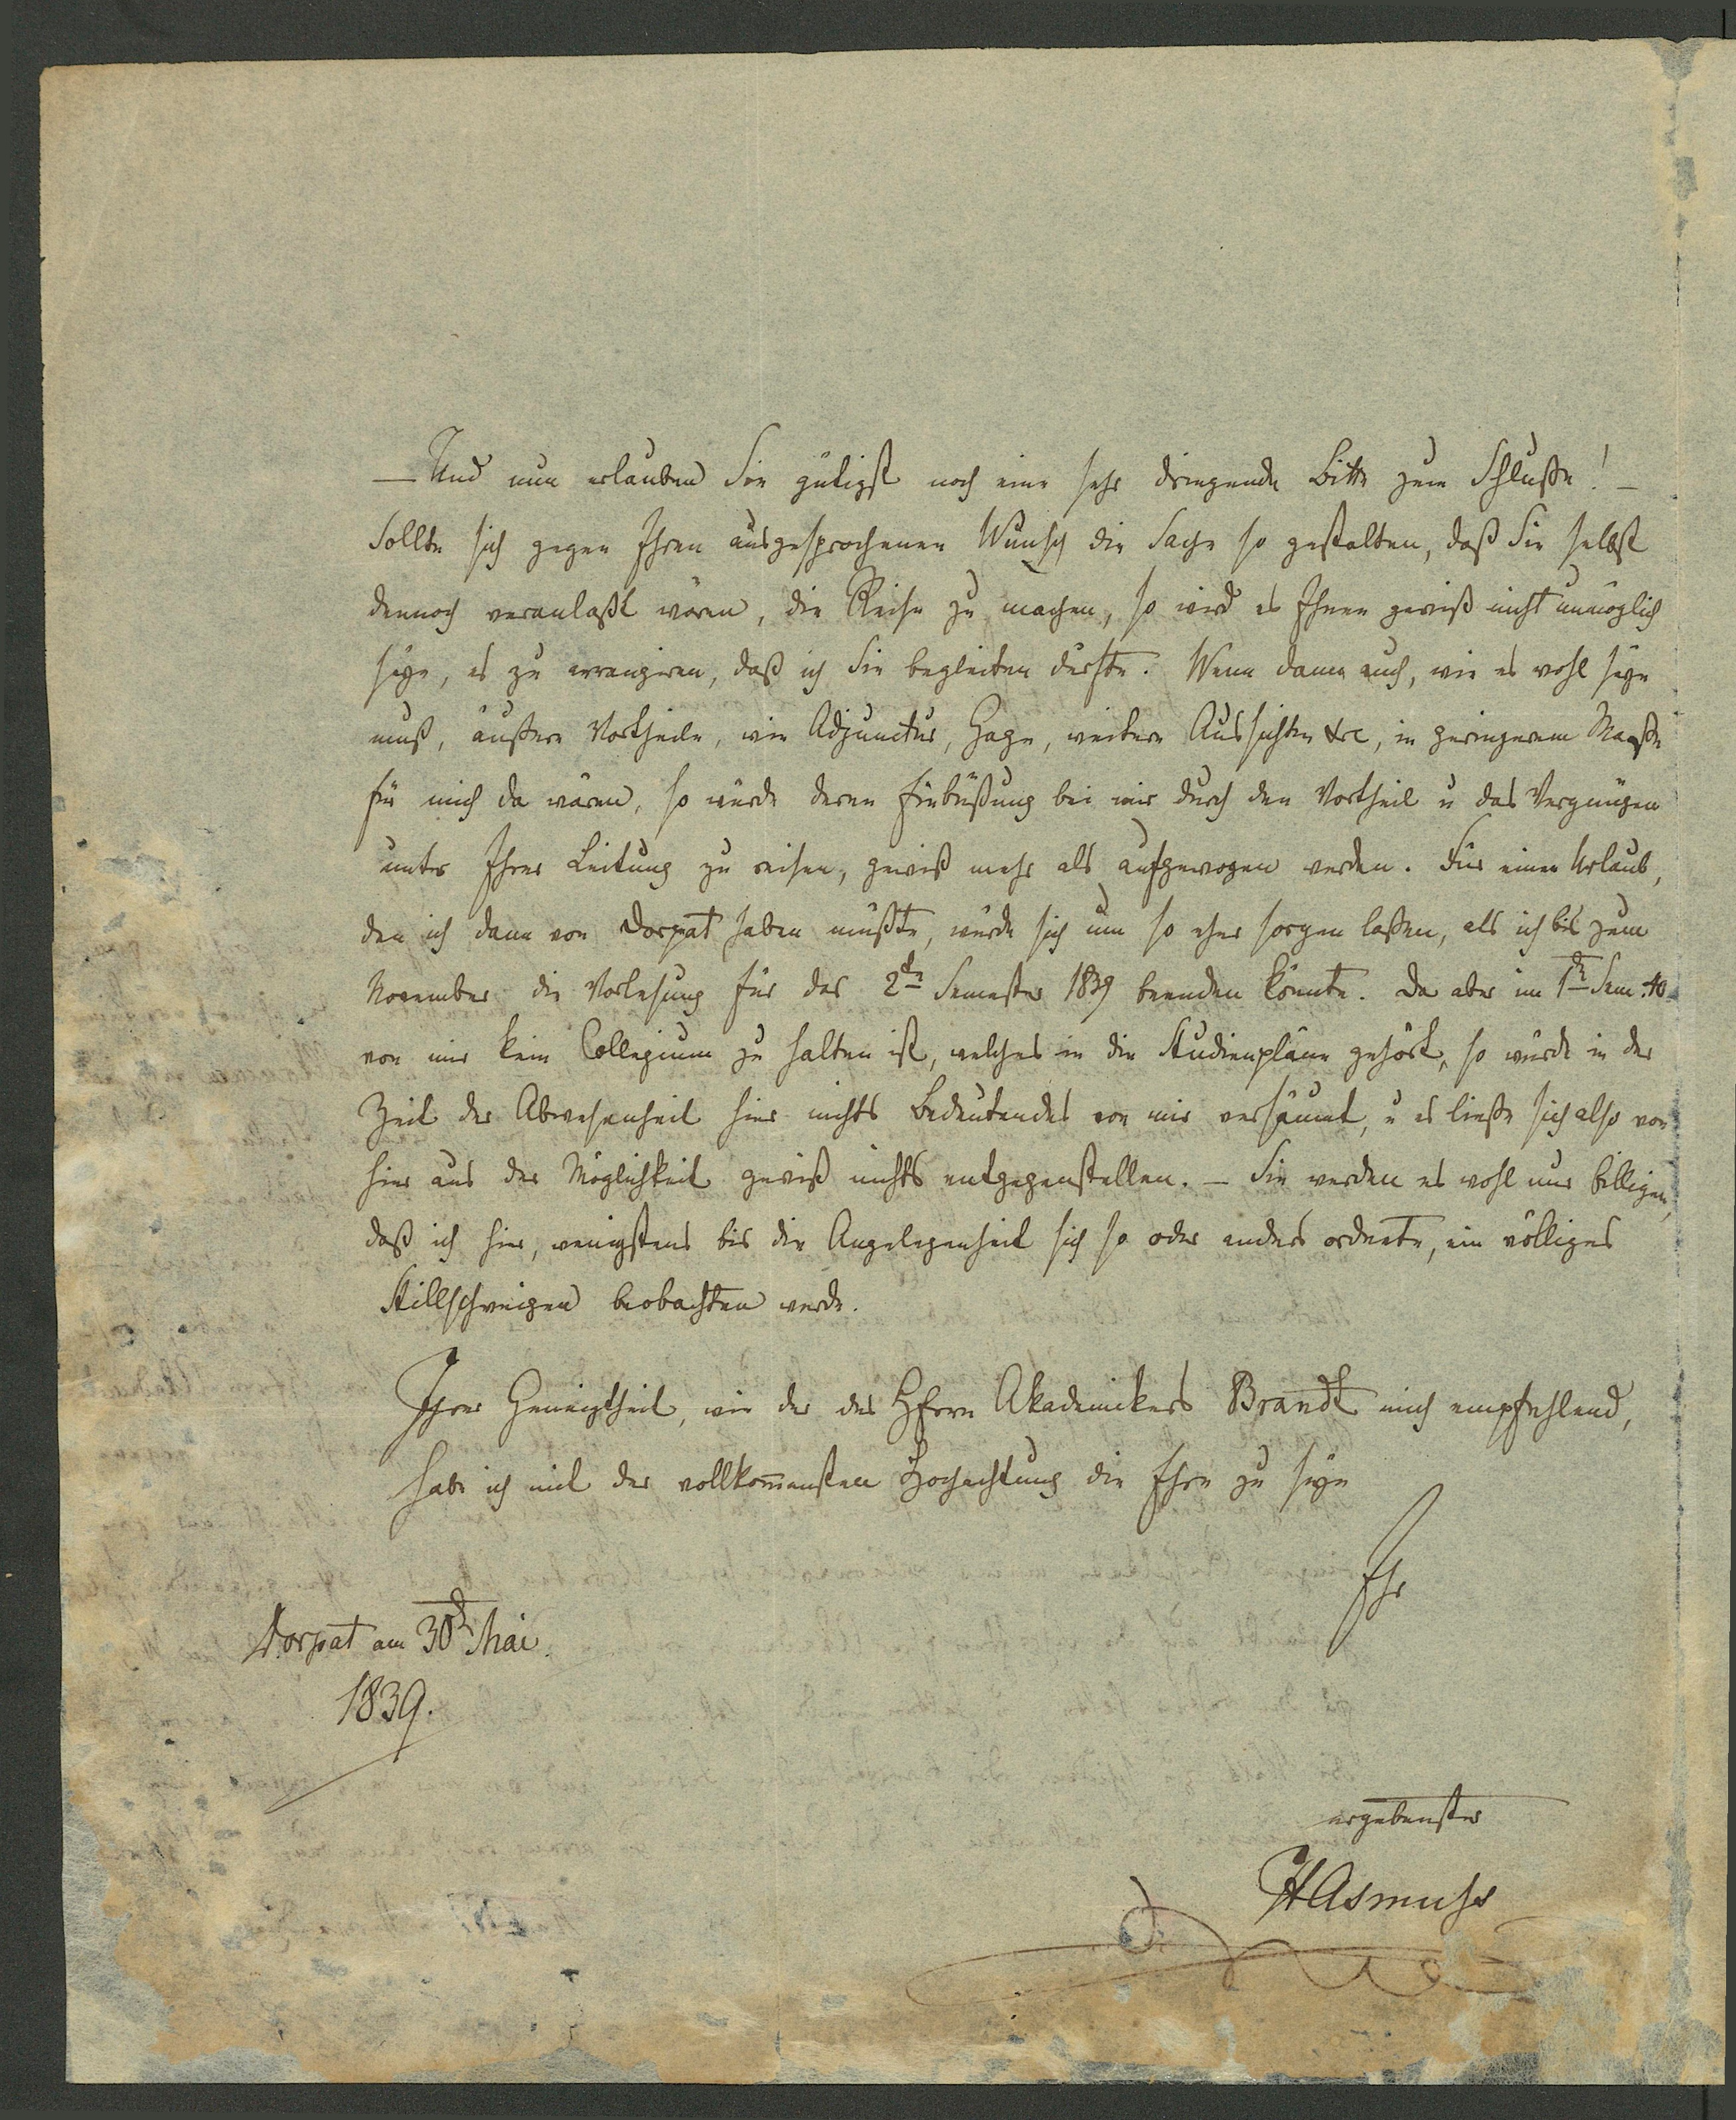 — Und nun erlauben Sie gütigst noch eine sehr dringende Bitte zum Schluße! —
Sollte sich gegen Ihren ausgesprochenen Wunsch die Sache so gestalten, daß Sie selbst
dennoch veranlaßt wären, die Reise zu machen, so wird es Ihnen gewiß nicht unmöglich
seyn, es zu arrangiren, daß ich Sie begleiten dürfte. Wenn dann auch, wie es wohl seyn
muß, äußere Vortheile, wie Adjunctur, Gage, weitere Aussichten etc, in geringerem Maaße
für mich da wären, so würde deren Einbüßung bei mir durch den Vortheil u das Vergnügen
unter Ihrer Leitung zu reisen, gewiß mehr als aufgewogen werden. Für einen Urlaub,
den ich dann von Dorpat haben müßte, würde sich um so eher sorgen laßen, als ich bis zum
November die Vorlesung für das 2te Semester 1839 beenden könnte. Da aber im 1ten Sem. 40
von mir kein Collegium zu halten ist, welches in die Studienpläne gehört, so würde in der
Zeit der Abwesenheit hier nichts Bedeutendes von mir versäumt, u es ließe sich also von
hier aus der Möglichkeit gewiß nichts entgegenstellen. — Sie werden es wohl nur billigen,
daß ich hier, wenigstens bis die Angelegenheit sich so oder anders ordnete, ein völliges
Stillschweigen beobachten werde.
Ihrer Geneigtheit, wie der des Herrn Akademikers Brandt mich empfehlend,
habe ich mit der vollkom̅ensten Hochachtung die Ehre zu seyn
Ihr
Dorpat am 30t Mai
1839.
ergebenster
HAsmuss